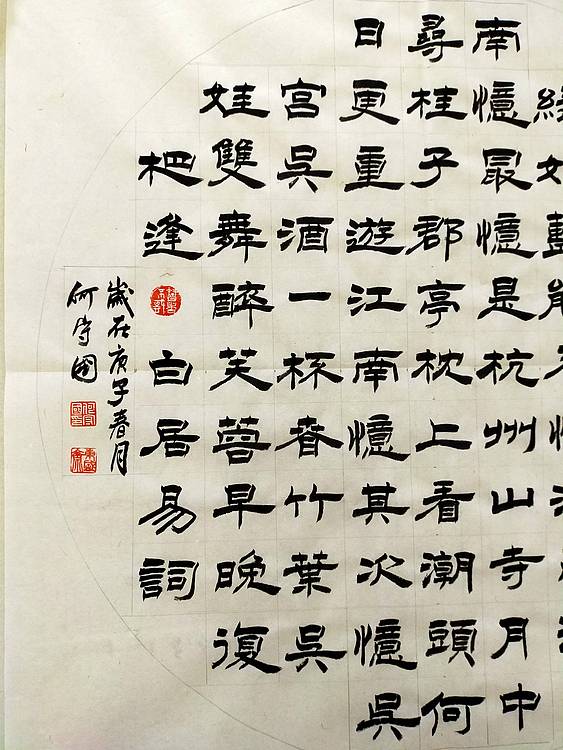 南憶最憶是杭州山寺月中
尋桂子郡亭枕上看潮頭何
日更重遊江南憶其次憶吳
宮吳酒一杯春竹葉吳
娃雙舞醉芙蓉早晚復
杷逢 白居易詞
歲在庚子春月
何守國